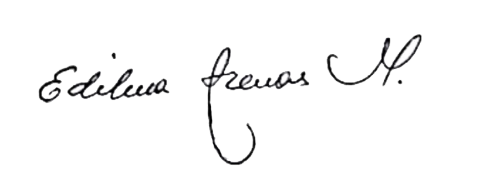 Edilma Arenas M.